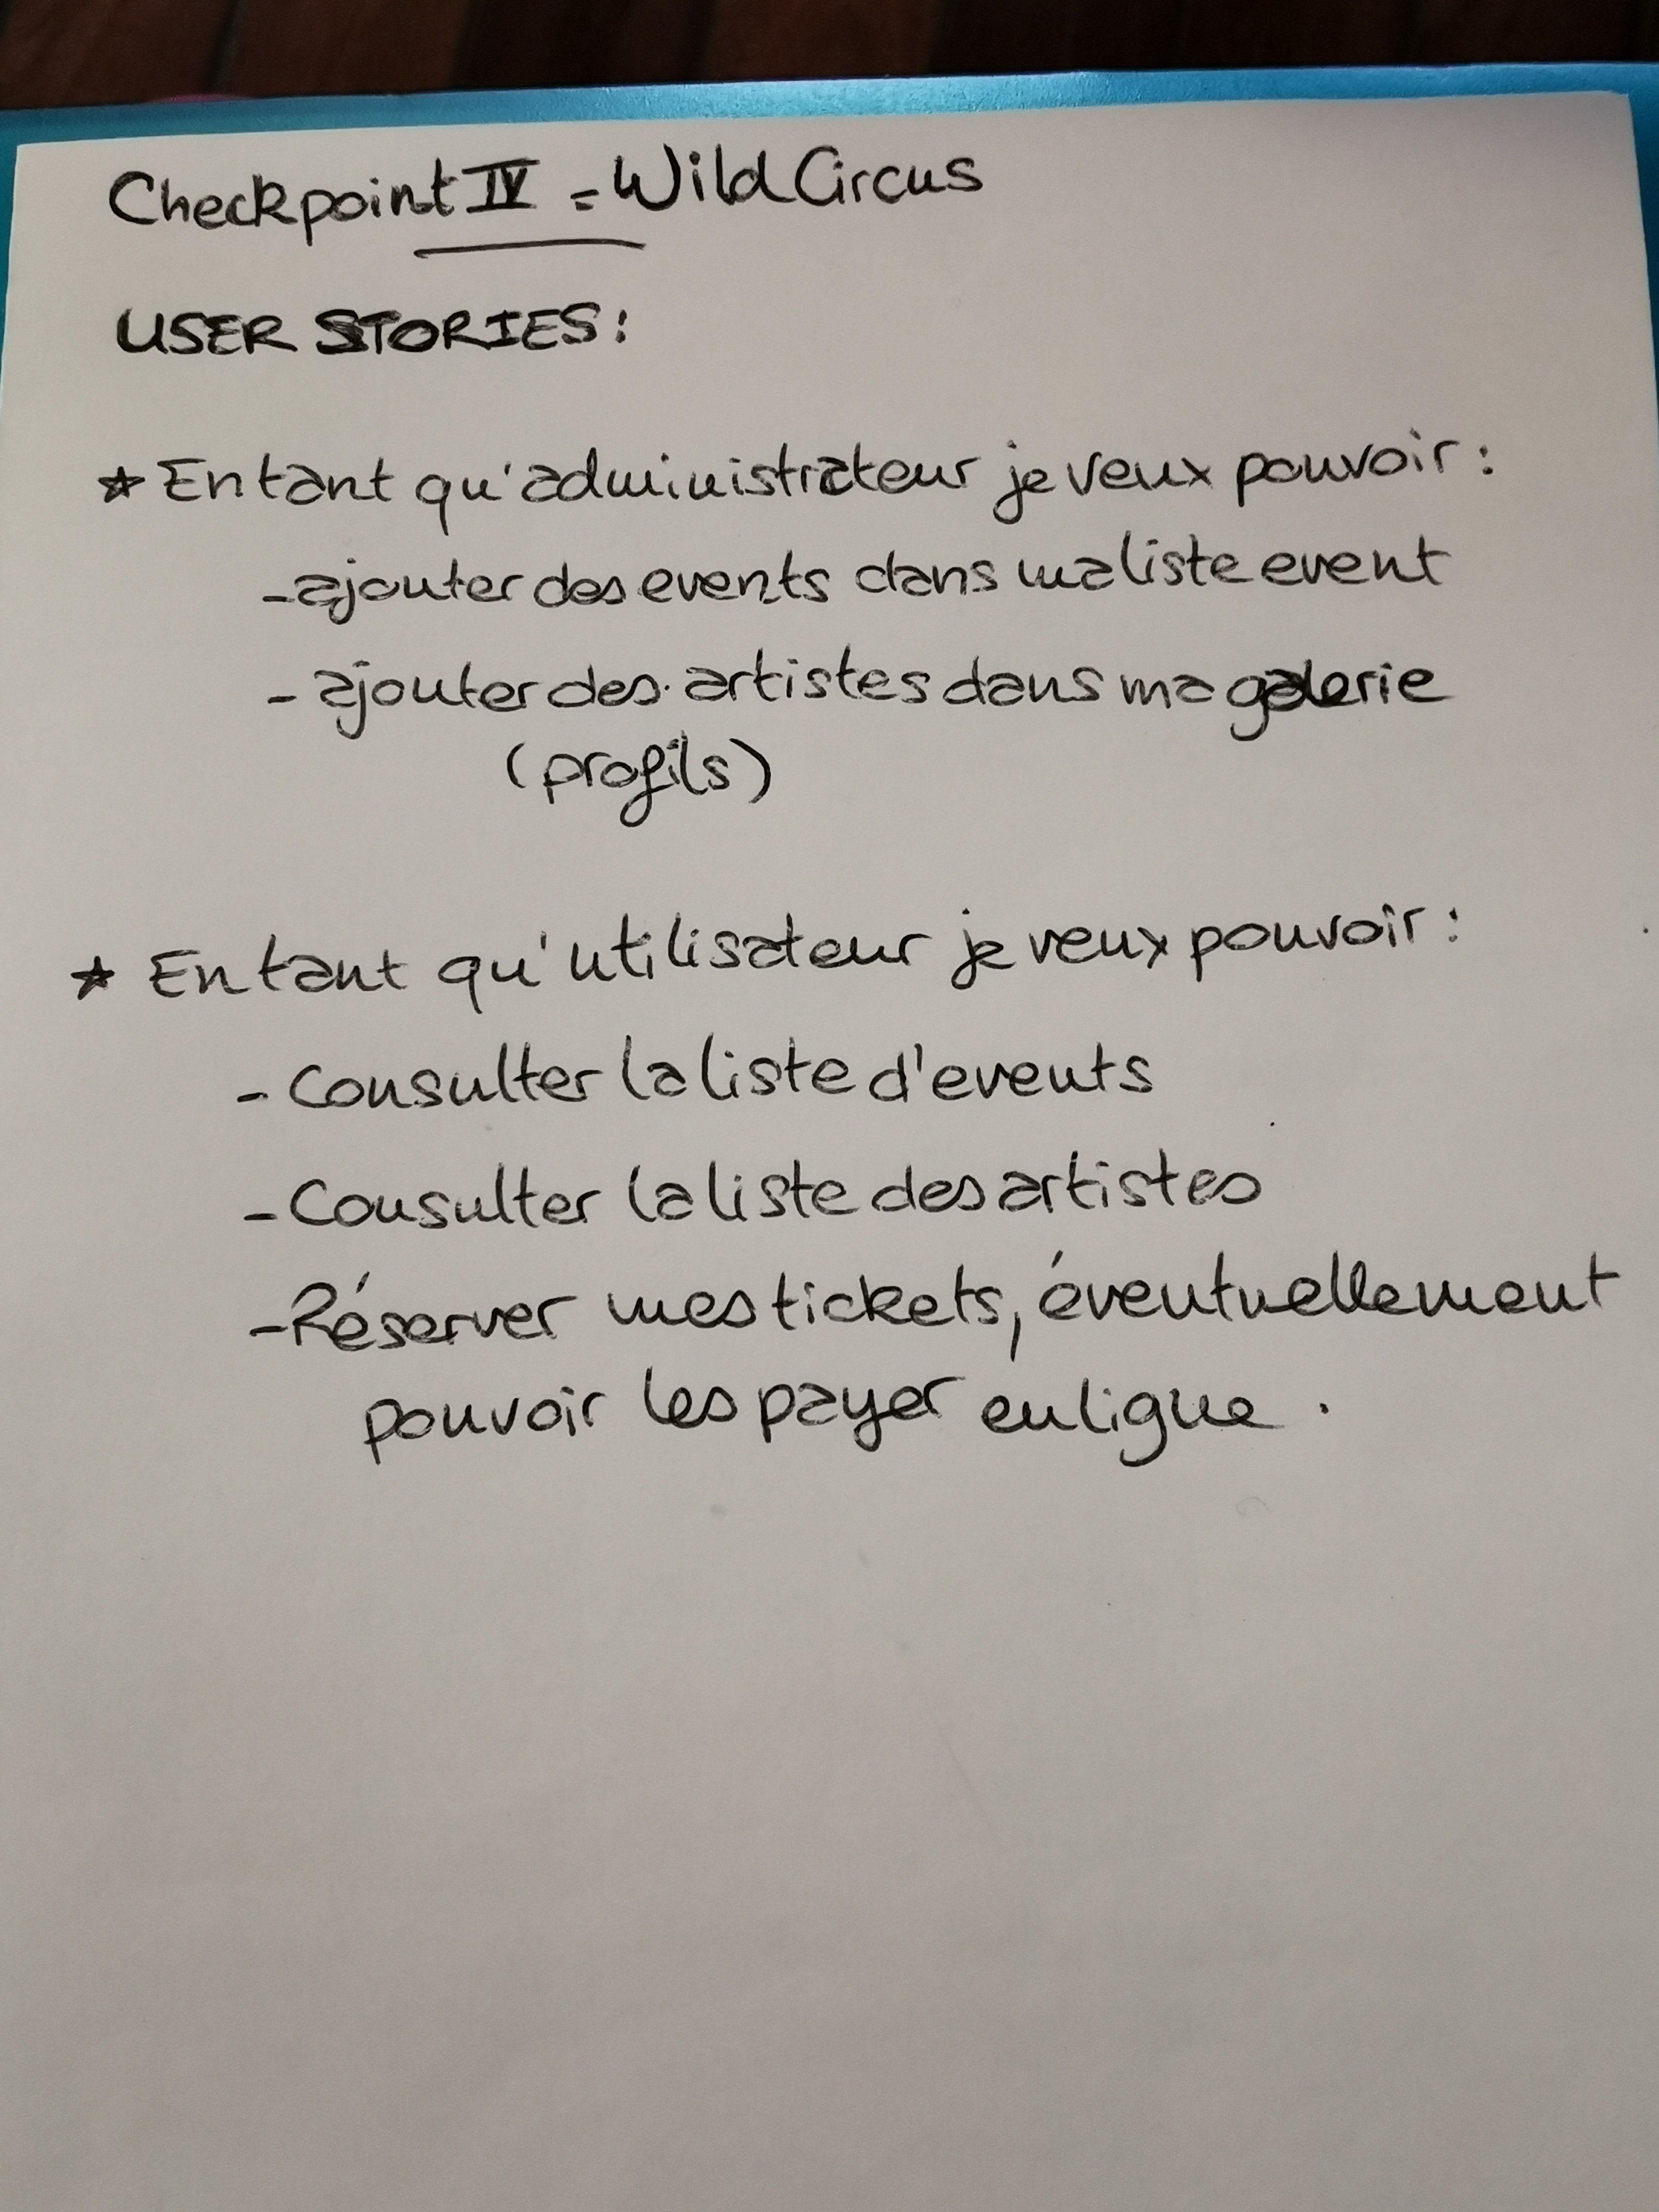 Checkpoint IV = Wild Circus
USER STORIES :
* En tant qu'administrateur je veux pouvoir :
- ajouter des events dans ma liste event
- ajouter des artistes dans ma galerie
(profils)
* En tant qu'utilisateur je veux pouvoir :
- Consulter la liste d'events
- Consulter la liste des artistes
- Réserver mes tickets, éventuellement
pouvoir les payer en ligne .